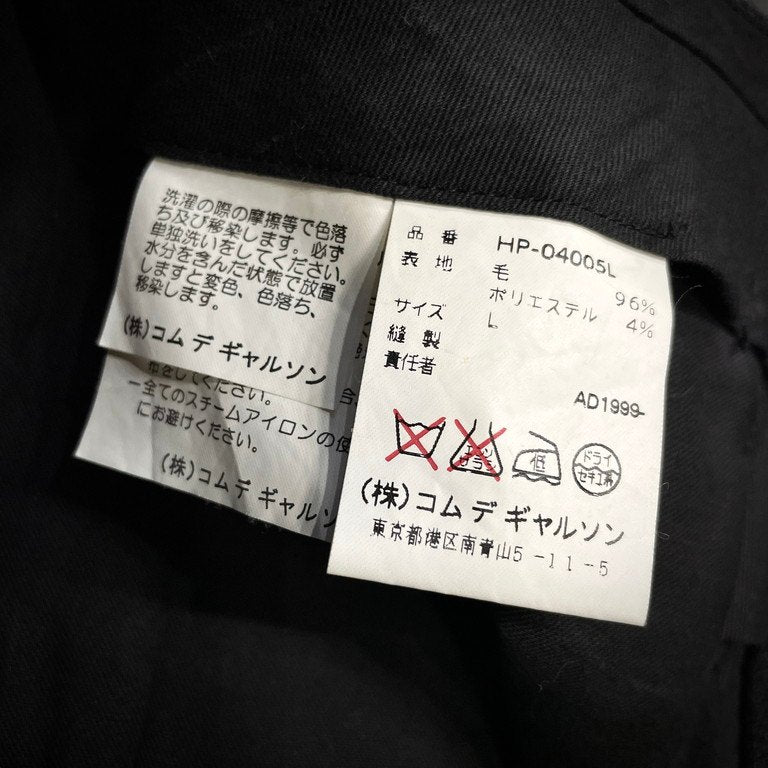 洗濯の際の摩擦等で色落
ち及び移染します。必ず
単独洗いをしてください。
水分を含んだ状態で放置
しますと変色、色落ち、
移染します。
(株)コム デ ギャルソン
布をしてください。
一全てのスチームアイロンの使
にお避けください。
(株)コム デ ギャルソ
品番 HP-04005L
表地 毛 96%
ポリエステル 4%
サイズ L
縫製
責任者
AD1999
エンソ
サラシ
低
ドライ
セキユ系
(株)コム デ ギャルソン
東京都港区南青山5-11-5